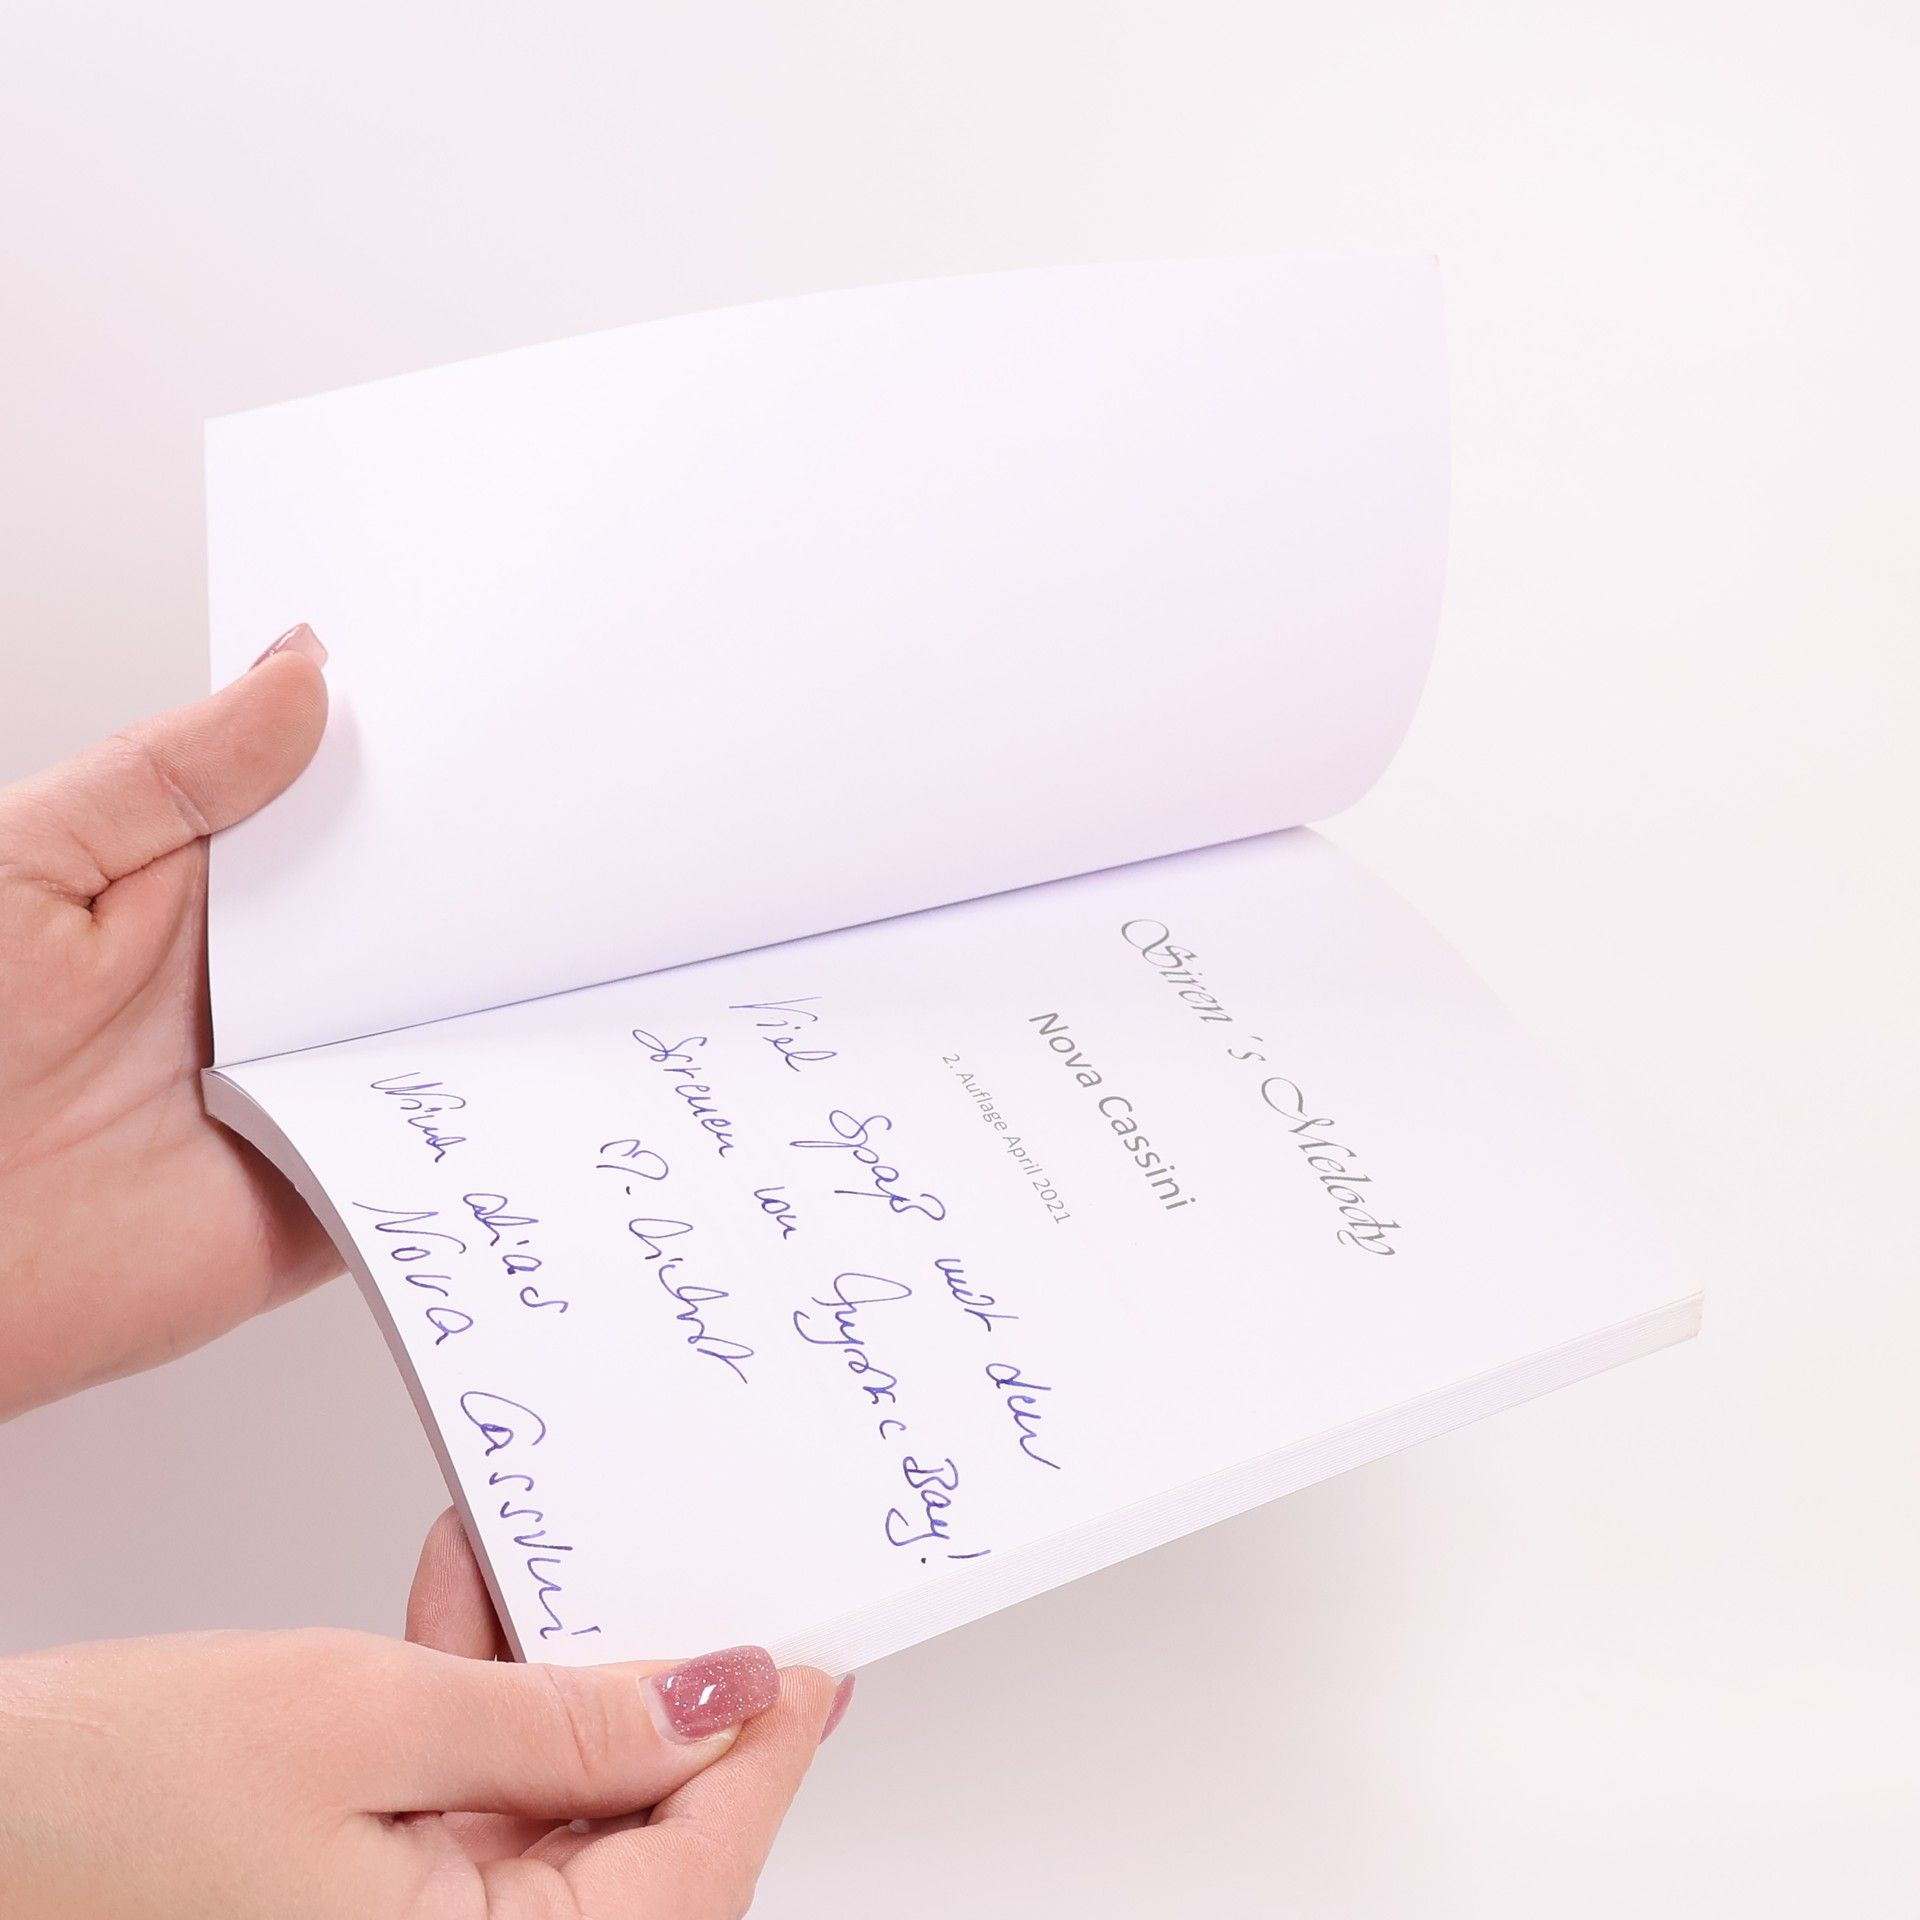 Siren´s Melody
Nova Cassini
2. Auflage April 2021
Viel Spaß mit den
Sirenen von Bay!
Nova Cassini